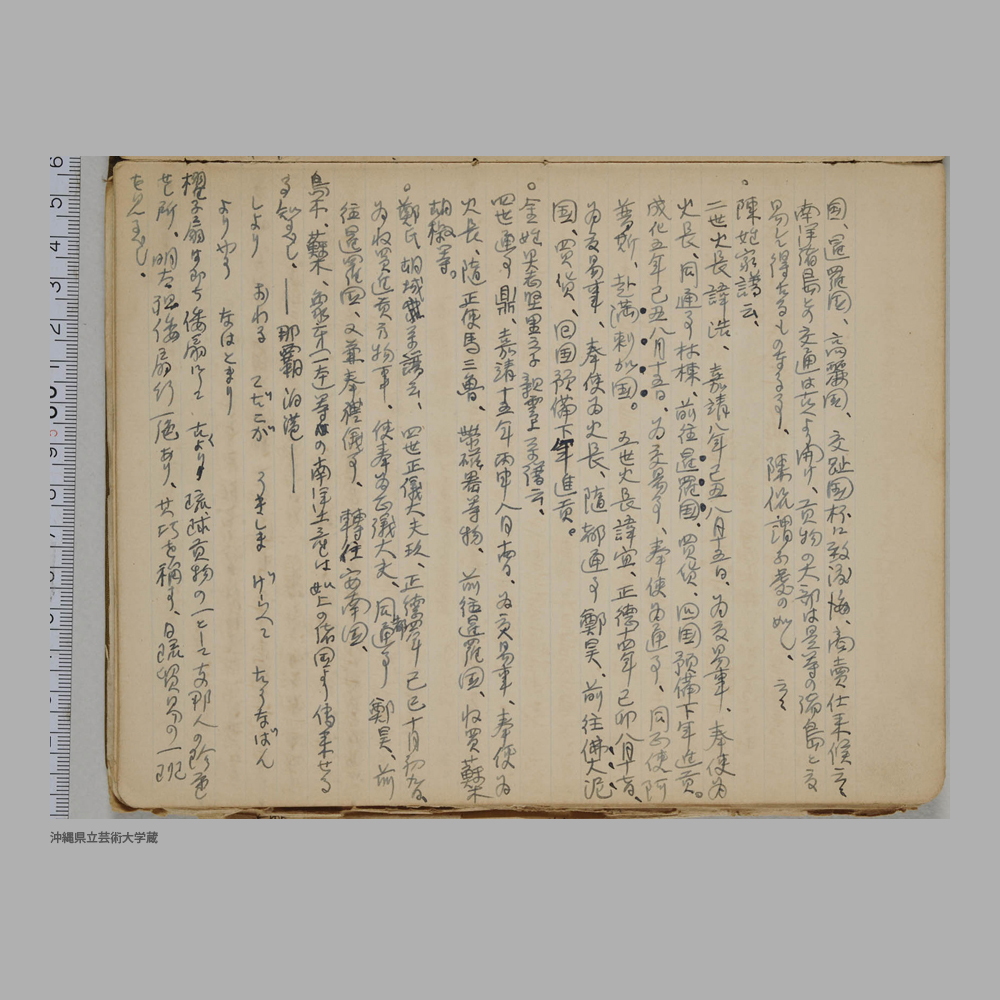 国、暹羅国、高麗国、交趾国杯に致渡海、商賣仕来候云々
南洋諸島との交通は古くより開け、貢物の大部は是等の諸島と交
易して得たるものなるは、陳侃謂ふ処の如し、云々
陳姓家譜云、
二世火長諱浩、嘉靖八年己丑八月十五日、為交易事、奉使為
火長、同通事林棟、前往暹羅国、買貨、回国預備下年進貢。
成化五年己丑八月十五日、為交易事、奉使為通事、同正使阿
普斯、赴満剌加国。 五世火長諱宜、正德十四年己卯八月十五日、
為交易事、奉使為火長、随都通事鄭昊、前往佛大泥
国、買貨、回国預備下年進貢。
金姓
四世通事鼎、嘉靖十五年丙申八月
火長、随正使馬三魯、帯磁器等物、前往暹羅国、收買蘇木
胡椒等。
鄭氏 云、四世正儀大夫玖、正德四年己巳十月初九日、
為收買進貢方物事、使奉為正儀大夫、同都通事鄭昊、前
往暹羅国、又兼奉禮儀事、轉往安南国、
烏木、蘇木、 等の南洋土産は如上の諸国より傳来せる
を知るべし、── 那覇泊港 ──
しより おわる てだこが うきしま げらへて たうなばん
よりやう なはどまり
櫂子扇は即ち倭扇にて、古より琉球貢物の一として支那人の珍重
せし所、明太祖倭扇行一應あり、其巧を稱す、日琉貿易の一班
を見るべし。
沖縄県立芸術大学蔵